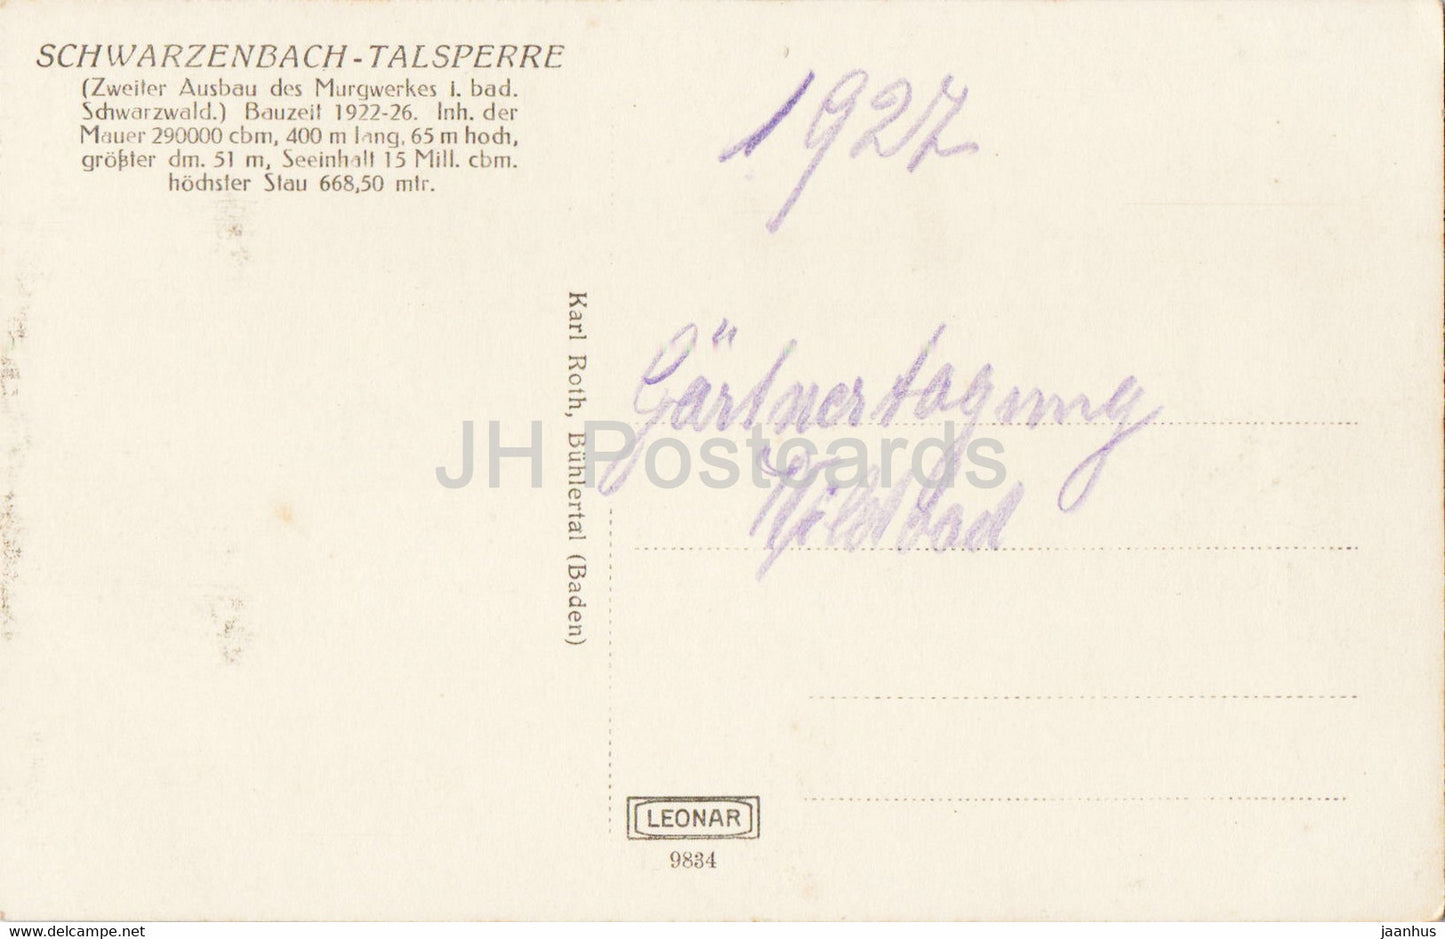 SCHWARZENBACH-TALSPERRE
(Zweiter Ausbau des Murgwerkes i. bad.
Schwarzwald.) Bauzeit 1922-26. Inh. der
Mauer 290000 cbm, 400 m lang, 65 m hoch,
größter dm. 51 m, Seeinhalt 15 Mill. cbm.
höchster Stau 668,50 mtr.
1927
Karl Roth, Bühlertal (Baden)
Gärtnertagung
Wildbad
JH Postcards
LEONAR
9834
www.delcampe.net
jaanhus